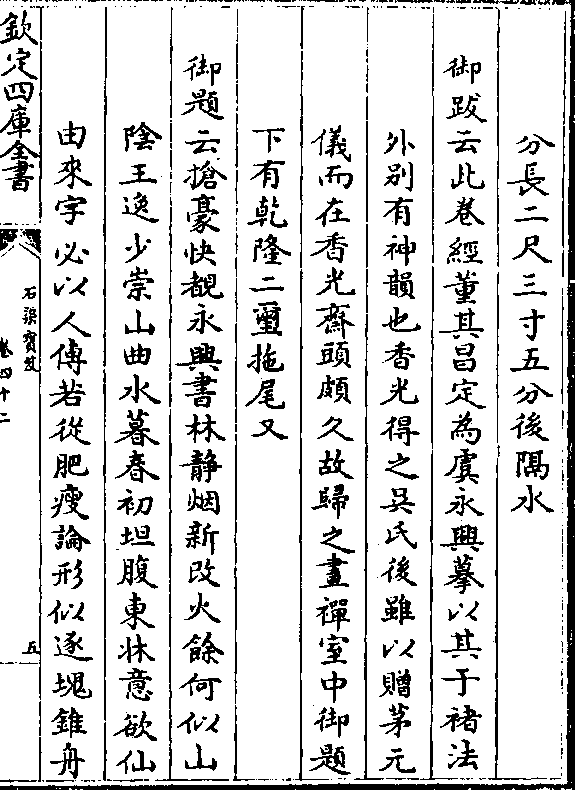 分長二尺三寸五分後隔水
御跋云此卷經董其昌定為虞永興摹以其于褚法
外別有神韻也香光得之吳氏後雖以贈茅元
儀而在香光齋頭頗久故歸之畫禪室中御題
下有乾隆二璽拖尾又
御題云搶豪快覩永興書林靜烟新改火餘何似山
陰王逸少崇山曲水暮春初坦腹東牀意欲仙
由來字必以人傳若從肥瘦論形似逐塊錐舟
欽定四庫全書
石渠寳笈
卷四十二
五